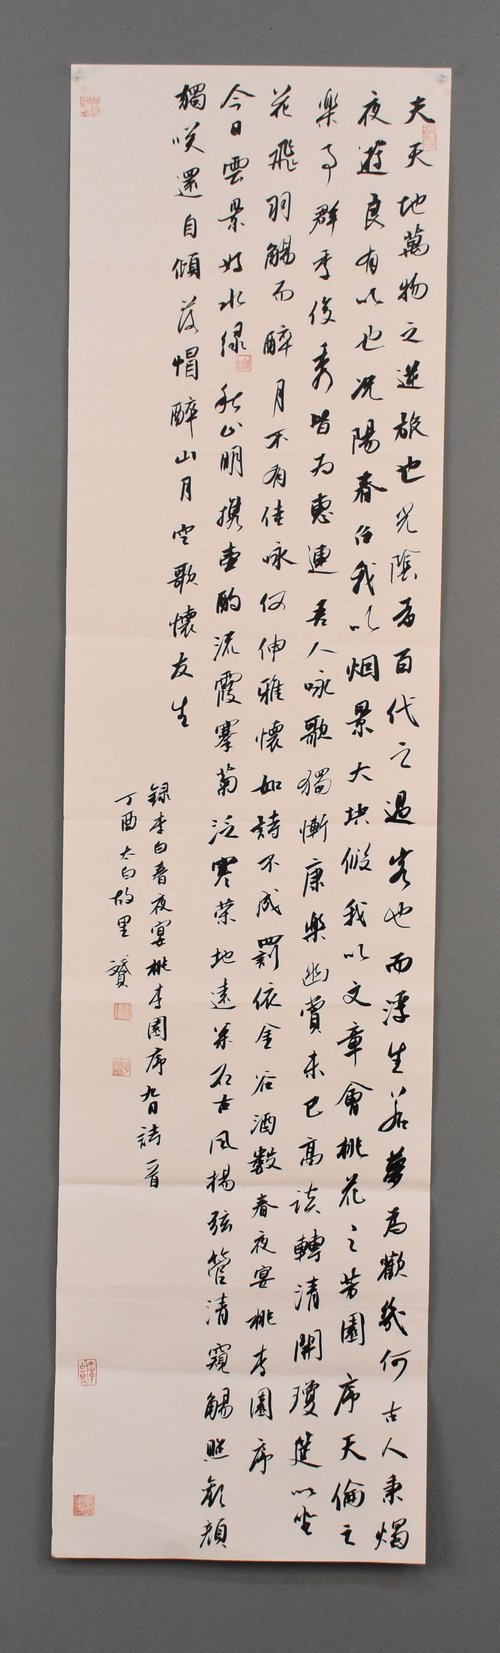 夫天地萬物之逆旅也光陰者百代之過客也而浮生若夢為歡幾何古人秉燭
夜遊良有以也況陽春召我以烟景大块假我以文章會桃花之芳園序天倫之
樂事群季俊秀皆为惠連吾人咏歌獨慚康樂幽賞未已高談轉清開瓊筵以坐
花飛羽觴而醉月不有佳咏何伸雅懷如詩不成罰依金谷酒數春夜宴桃李園序
今日雲景好水緑秋山明攜壺酌流霞搴菊泛寒荣地遠松石古風揚弦管清窺觴照歡顔
獨笑還自傾落帽醉山月空歌懷友生
録李白春夜宴桃李園序九日詩一首
丁酉太白故里